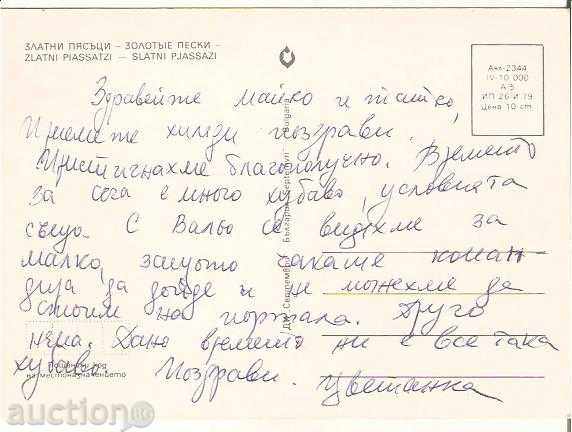 ЗЛАТНИ ПЯСЪЦИ – ЗОЛОТЫЕ ПЕСКИ –
ZLATNI PIASSATZI – SLATNI PJASSAZI
Анк-2344
IV-10 000
А/3
ИП 26-И-79
Цена 10 ст.
Здравейте майко и татко,
Приемете хиляди поздрави.
Пристигнахме благополучно. Времето
за сега е много хубаво, условията
също. С Вальо се видяхме за
малко, защото чакаше коман
дира да дойде и не можехме да
стоим на портала. Друго
няма. Дано времето ни е все така
хубаво. Поздрави. Цветанка
ДП Септември България Septemvri Bulgaria
Пощенски код
на местоназначението
auction.bg